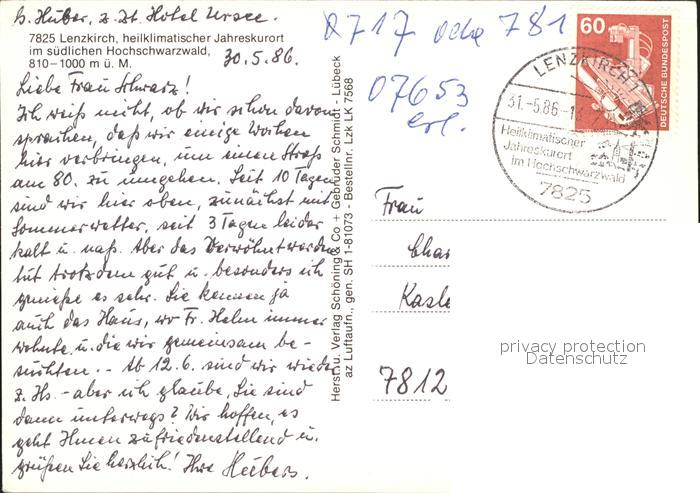 B. Huber, z. Zt. Hotel Ursee.
7825 Lenzkirch, heilklimatischer Jahreskurort
im südlichen Hochschwarzwald,
810–1000 m ü. M.
30.5.86.
Liebe Frau Schwarz!
Ich weiß nicht, ob wir schon davon
sprachen, daß wir einige Wochen
hier verbringen, um einen Stress
am 80. zu umgehen. Seit 10 Tagen
sind wir hier oben, zunächst mit
Sommerwetter, seit 3 Tagen leider
kalt u. naß. Aber das Verwöhntwerden
tut trotzdem gut u. besonders ich
genieße es sehr. Sie kennen ja
auch das Haus, wo Fr. Helm immer
wohnte u. die wir gemeinsam be-
suchten. - Ab 12.6. sind wir wieder
z. Hs. - aber ich glaube, Sie sind
dann unterwegs? Wir hoffen, es
geht Ihnen zufriedenstellend u.
grüßen Sie herzlich! Ihre Hubers.
Herst. u. Verlag Schöning & Co + Gebrüder Schmidt - Lübeck
az Luftaufn., gen. SH 1-81073 - Bestellnr. Lzk LK 7568
0717 oder 781
07653
erl.
60
DEUTSCHE BUNDESPOST
LENZKIRCH 1
31.-5.86-1
Heilklimatischer
Jahreskurort
im Hochschwarzwald
7825
Frau
Char
Kaste
7812
privacy protection
Datenschutz